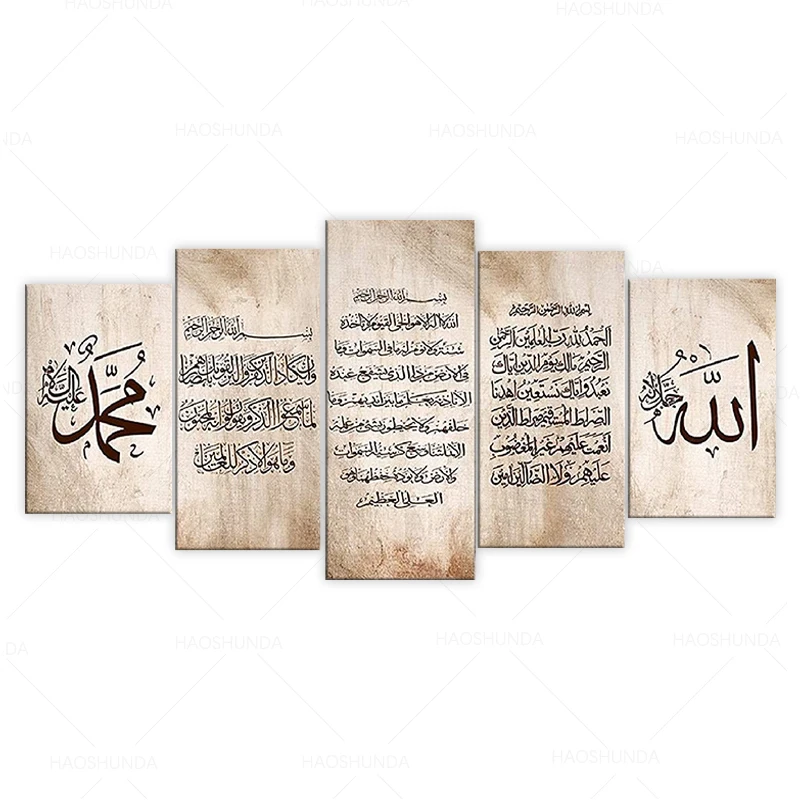 الله جل جلاله
بسم الله الرحمن الرحيم
الحمد لله رب العلمين الرحمن
الرحيم مالك يوم الدين اياك
نعبد واياك نستعين اهدنا
الصراط المستقيم صراط الذين
انعمت عليهم غير المغضوب
عليهم ولا الضالين امين
بسم الله الرحمن الرحيم
الله لا اله الا هو الحي القيوم لا تاخذه
سنة ولا نوم له ما في السموات وما
في الارض من ذا الذي يشفع عنده
الا باذنه يعلم ما بين ايديهم وما
خلفهم ولا يحيطون بشيء من علمه
الا بما شاء وسع كرسيه السموات
والارض ولا يؤده حفظهما وهو
العلي العظيم
بسم الله الرحمن الرحيم
وان يكاد الذين كفروا ليزلقونك بابصارهم
لما سمعوا الذكر ويقولون انه لمجنون
وما هو الا ذكر للعالمين
محمد عليه السلام
HAOSHUNDA